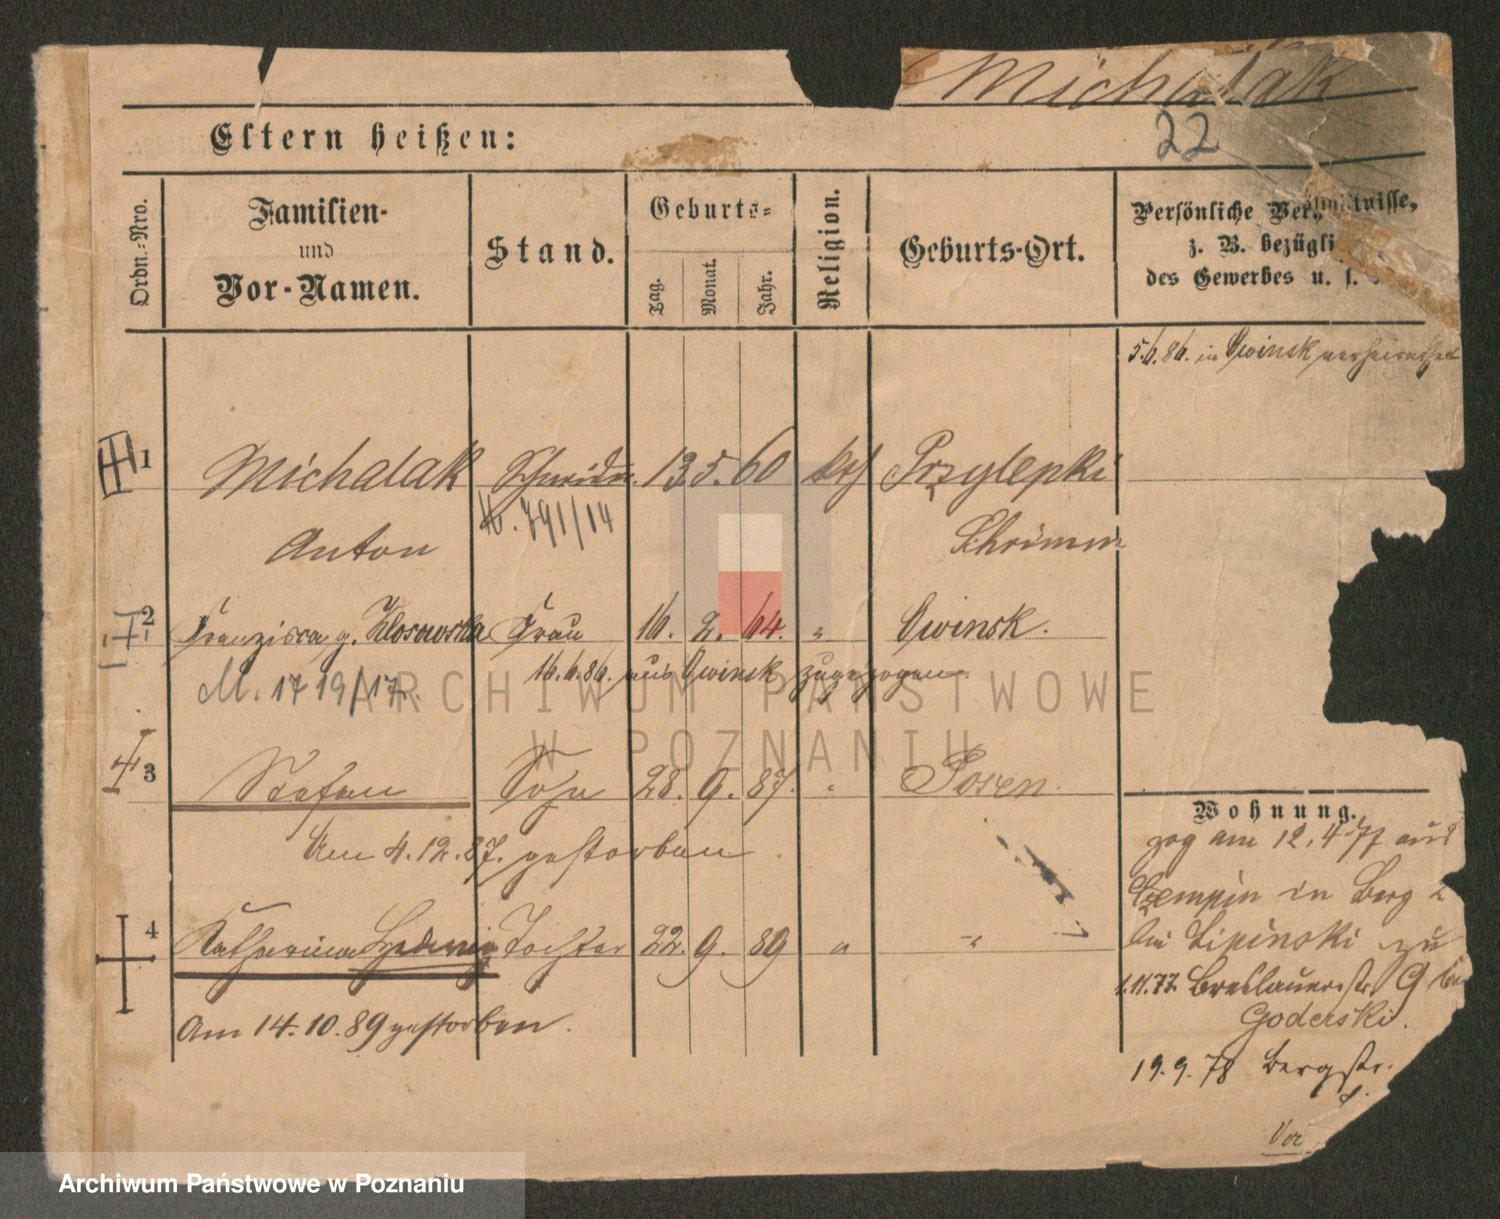 Michalak
22
Eltern heißen:
Ordn.-Nro.
Familien-
und
Vor-Namen.
Stand.
Geburts-
Tag.
Monat.
Jahr.
Religion.
Geburts-Ort.
Persönliche
z. B. bezügli
des Gewerbes u. s.
5.6.86. in Owinsk verheirathet
1 Michalak Schneider 13 5. 60 kth Przylepki
W. 791/14
Anton Schrimm
2 Franziska g. Klosowska Frau 16. 2. 64. " Owinsk.
16.6.86. aus Owinsk zugezogen.
M. 1719/17
3 Stefan Sohn 28. 9. 87. " Posen.
Am 4.12.87. gestorben
4 Katharina Hedwig Tochter 22. 9. 89 " "
Am 14.10.89 gestorben.
Wohnung.
zog am 12.4 77 aus
Czempin in Berg 2
bei Lipinski zu
1.11.77. Breslauerstr. 9 bei
Goderski.
19.9.78 Bergstr.
ARCHIWUM PAŃSTWOWE
W POZNANIU
Archiwum Państwowe w Poznaniu